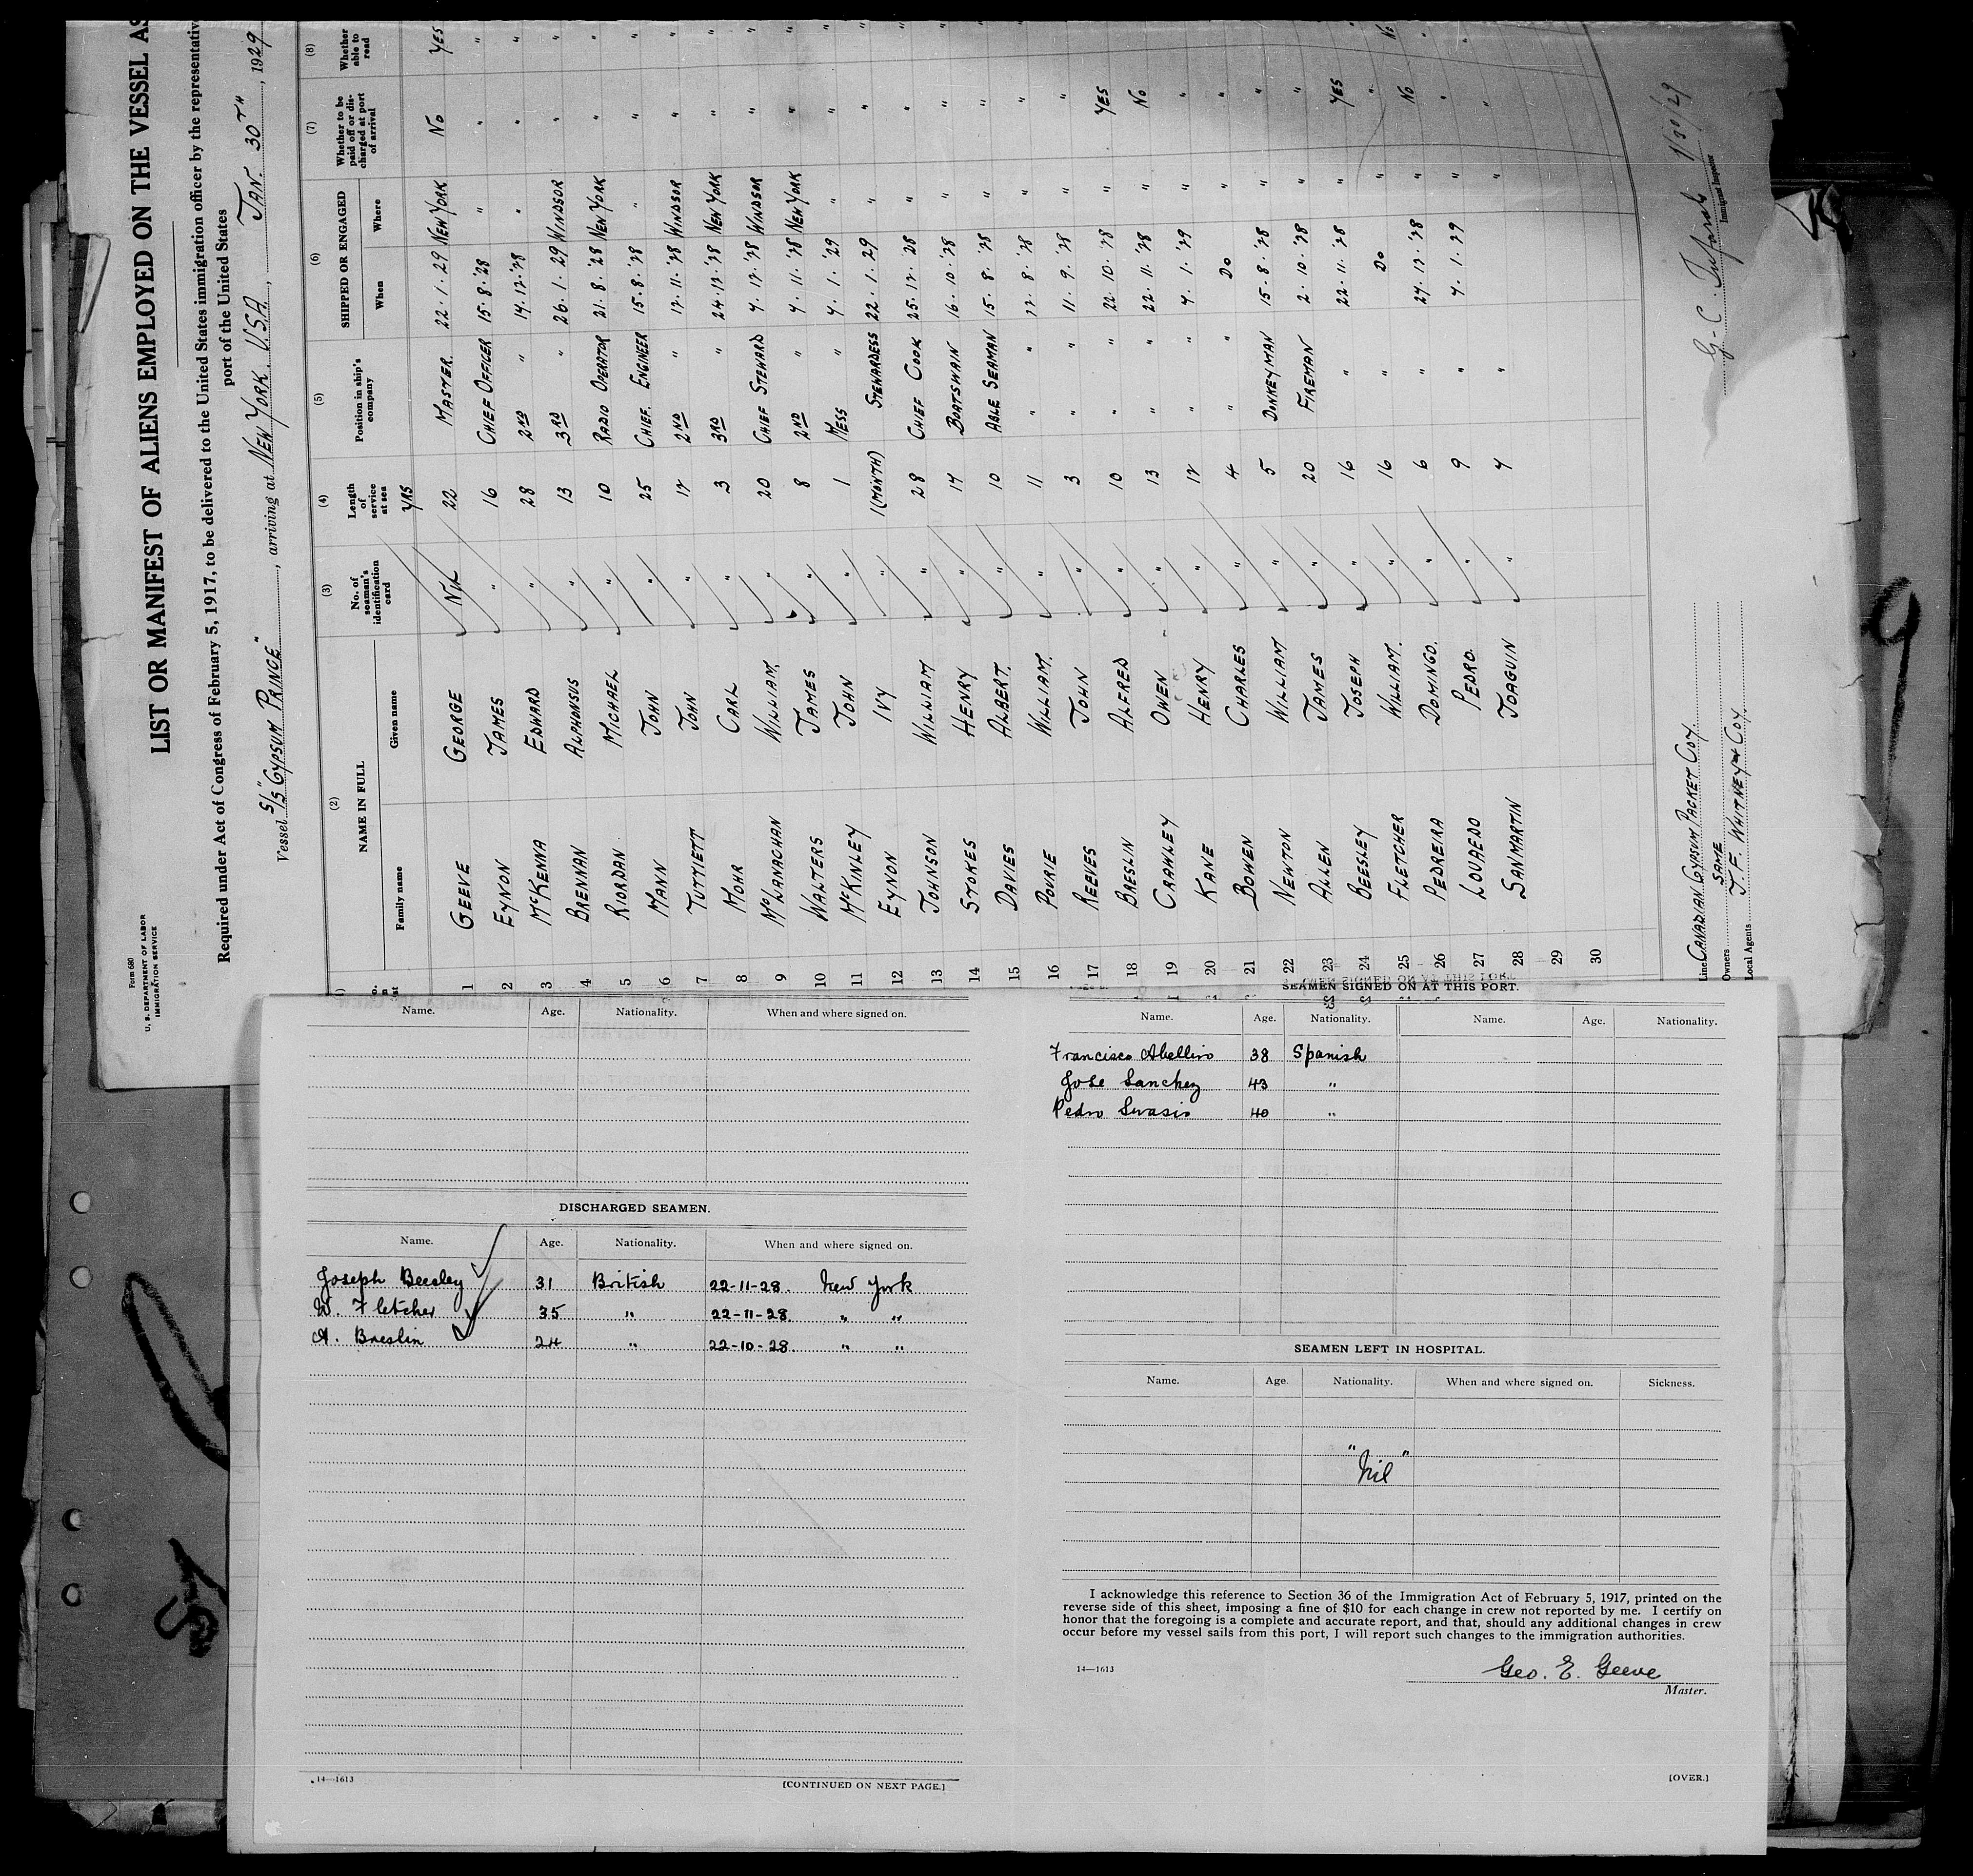 Form 680
U. S. DEPARTMENT OF LABOR
IMMIGRATION SERVICE
LIST OR MANIFEST OF ALIENS EMPLOYED ON THE VESSEL AS
Required under Act of Congress of February 5, 1917, to be delivered to the United States immigration officer by the representativ
port of the United States
Vessel S/S "GYPSUM PRINCE", arriving at NEW YORK. U.S.A., JAN. 30TH, 1929
(2) (3) (4) (5) (6) (7) (8)
NAME IN FULL No. of seaman's identification card Length of service at sea Position in ship's company SHIPPED OR ENGAGED Whether to be paid off or discharged at port of arrival Whether able to read
Family name Given name When Where
YRS
1 GEEVE GEORGE NIL 22 MASTER. 22.1.29 NEW YORK NO YES
2 EYNON JAMES " 16 CHIEF OFFICER 15.8.'28 " " "
3 McKENNA EDWARD " 28 2ND " 14.12.'28 " " "
4 BRENNAN ALPHONSUS " 13 3RD " 26.1.29 WINDSOR " "
5 RIORDAN MICHAEL " 10 RADIO OPERATOR 21.8.'28 NEW YORK " "
6 MANN JOHN " 25 CHIEF. ENGINEER 15.8.'28 " " "
7 TUTTIETT JOHN " 12 2ND " 12.11.'28 WINDSOR " "
8 MOHR CARL " 3 3RD " 24.12.'28 NEW YORK " "
9 McLANACHAN WILLIAM. " 20 CHIEF STEWARD 7.12.'28 WINDSOR " "
10 WALTERS JAMES " 8 2ND " 7.11.'28 NEW YORK " "
11 McKINLEY JOHN " 1 MESS " 7.1.'29 " " "
12 EYNON IVY " 1(MONTH) STEWARDESS 22.1.29 " " "
13 JOHNSON WILLIAM " 28 CHIEF COOK 25.12.28 " " "
14 STOKES HENRY " 17 BOATSWAIN 16.10.'28 " " "
15 DAVIES ALBERT. " 10 ABLE SEAMAN 15.8.'28 " " "
16 POURIE WILLIAM. " 11 " 12.8.'28 " " "
17 REEVES JOHN " 3 " 11.9.'28 " " "
18 BRESLIN ALFRED " 10 " 22.10.'28 " YES "
19 CRAWLEY OWEN " 13 " 22.11.'28 " NO "
20 KANE HENRY " 12 " 7.1.'29 " " "
21 BOWEN CHARLES " 4 " DO " " "
22 NEWTON WILLIAM " 5 DONKEYMAN 15.8.'28 " " "
23 ALLEN JAMES " 20 FIREMAN 2.10.'28 " " "
24 BEESLEY JOSEPH " 16 " 22.11.'28 " YES "
25 FLETCHER WILLIAM. " 16 " DO " " No
26 PEDREIRA DOMINGO. " 6 " 27.12.'28 " NO "
27 LOUAEDO PEDRO. " 9 " 7.1.29 " " "
28 SANMARTIN JOAQUIN " 7 " " "
29
30
Line CANADIAN GYPSUM PACKET COY.
Owners SAME
Local Agents J.F. WHITNEY & COY.
1/30/29
Immigrant Inspector
Name. Age. Nationality. When and where signed on.
DISCHARGED SEAMEN.
Name. Age. Nationality. When and where signed on.
Joseph Beesley 31 British 22-11-28. New York
W. Fletcher 35 " 22-11-28. " "
A. Breslin 24 " 22-10-28 " "
14—1613
[CONTINUED ON NEXT PAGE.]
SEAMEN SIGNED ON AT THIS PORT.
Name. Age. Nationality. Name. Age. Nationality.
Francisco Abelliro 38 Spanish
Jose Sanchez 43 "
Pedro 40 "
SEAMEN LEFT IN HOSPITAL.
Name. Age. Nationality. When and where signed on. Sickness.
"Nil"
I acknowledge this reference to Section 36 of the Immigration Act of February 5, 1917, printed on the
reverse side of this sheet, imposing a fine of $10 for each change in crew not reported by me. I certify on
honor that the foregoing is a complete and accurate report, and that, should any additional changes in crew
occur before my vessel sails from this port, I will report such changes to the immigration authorities.
14—1613
Geo. E. Geeve
Master.
[OVER.]